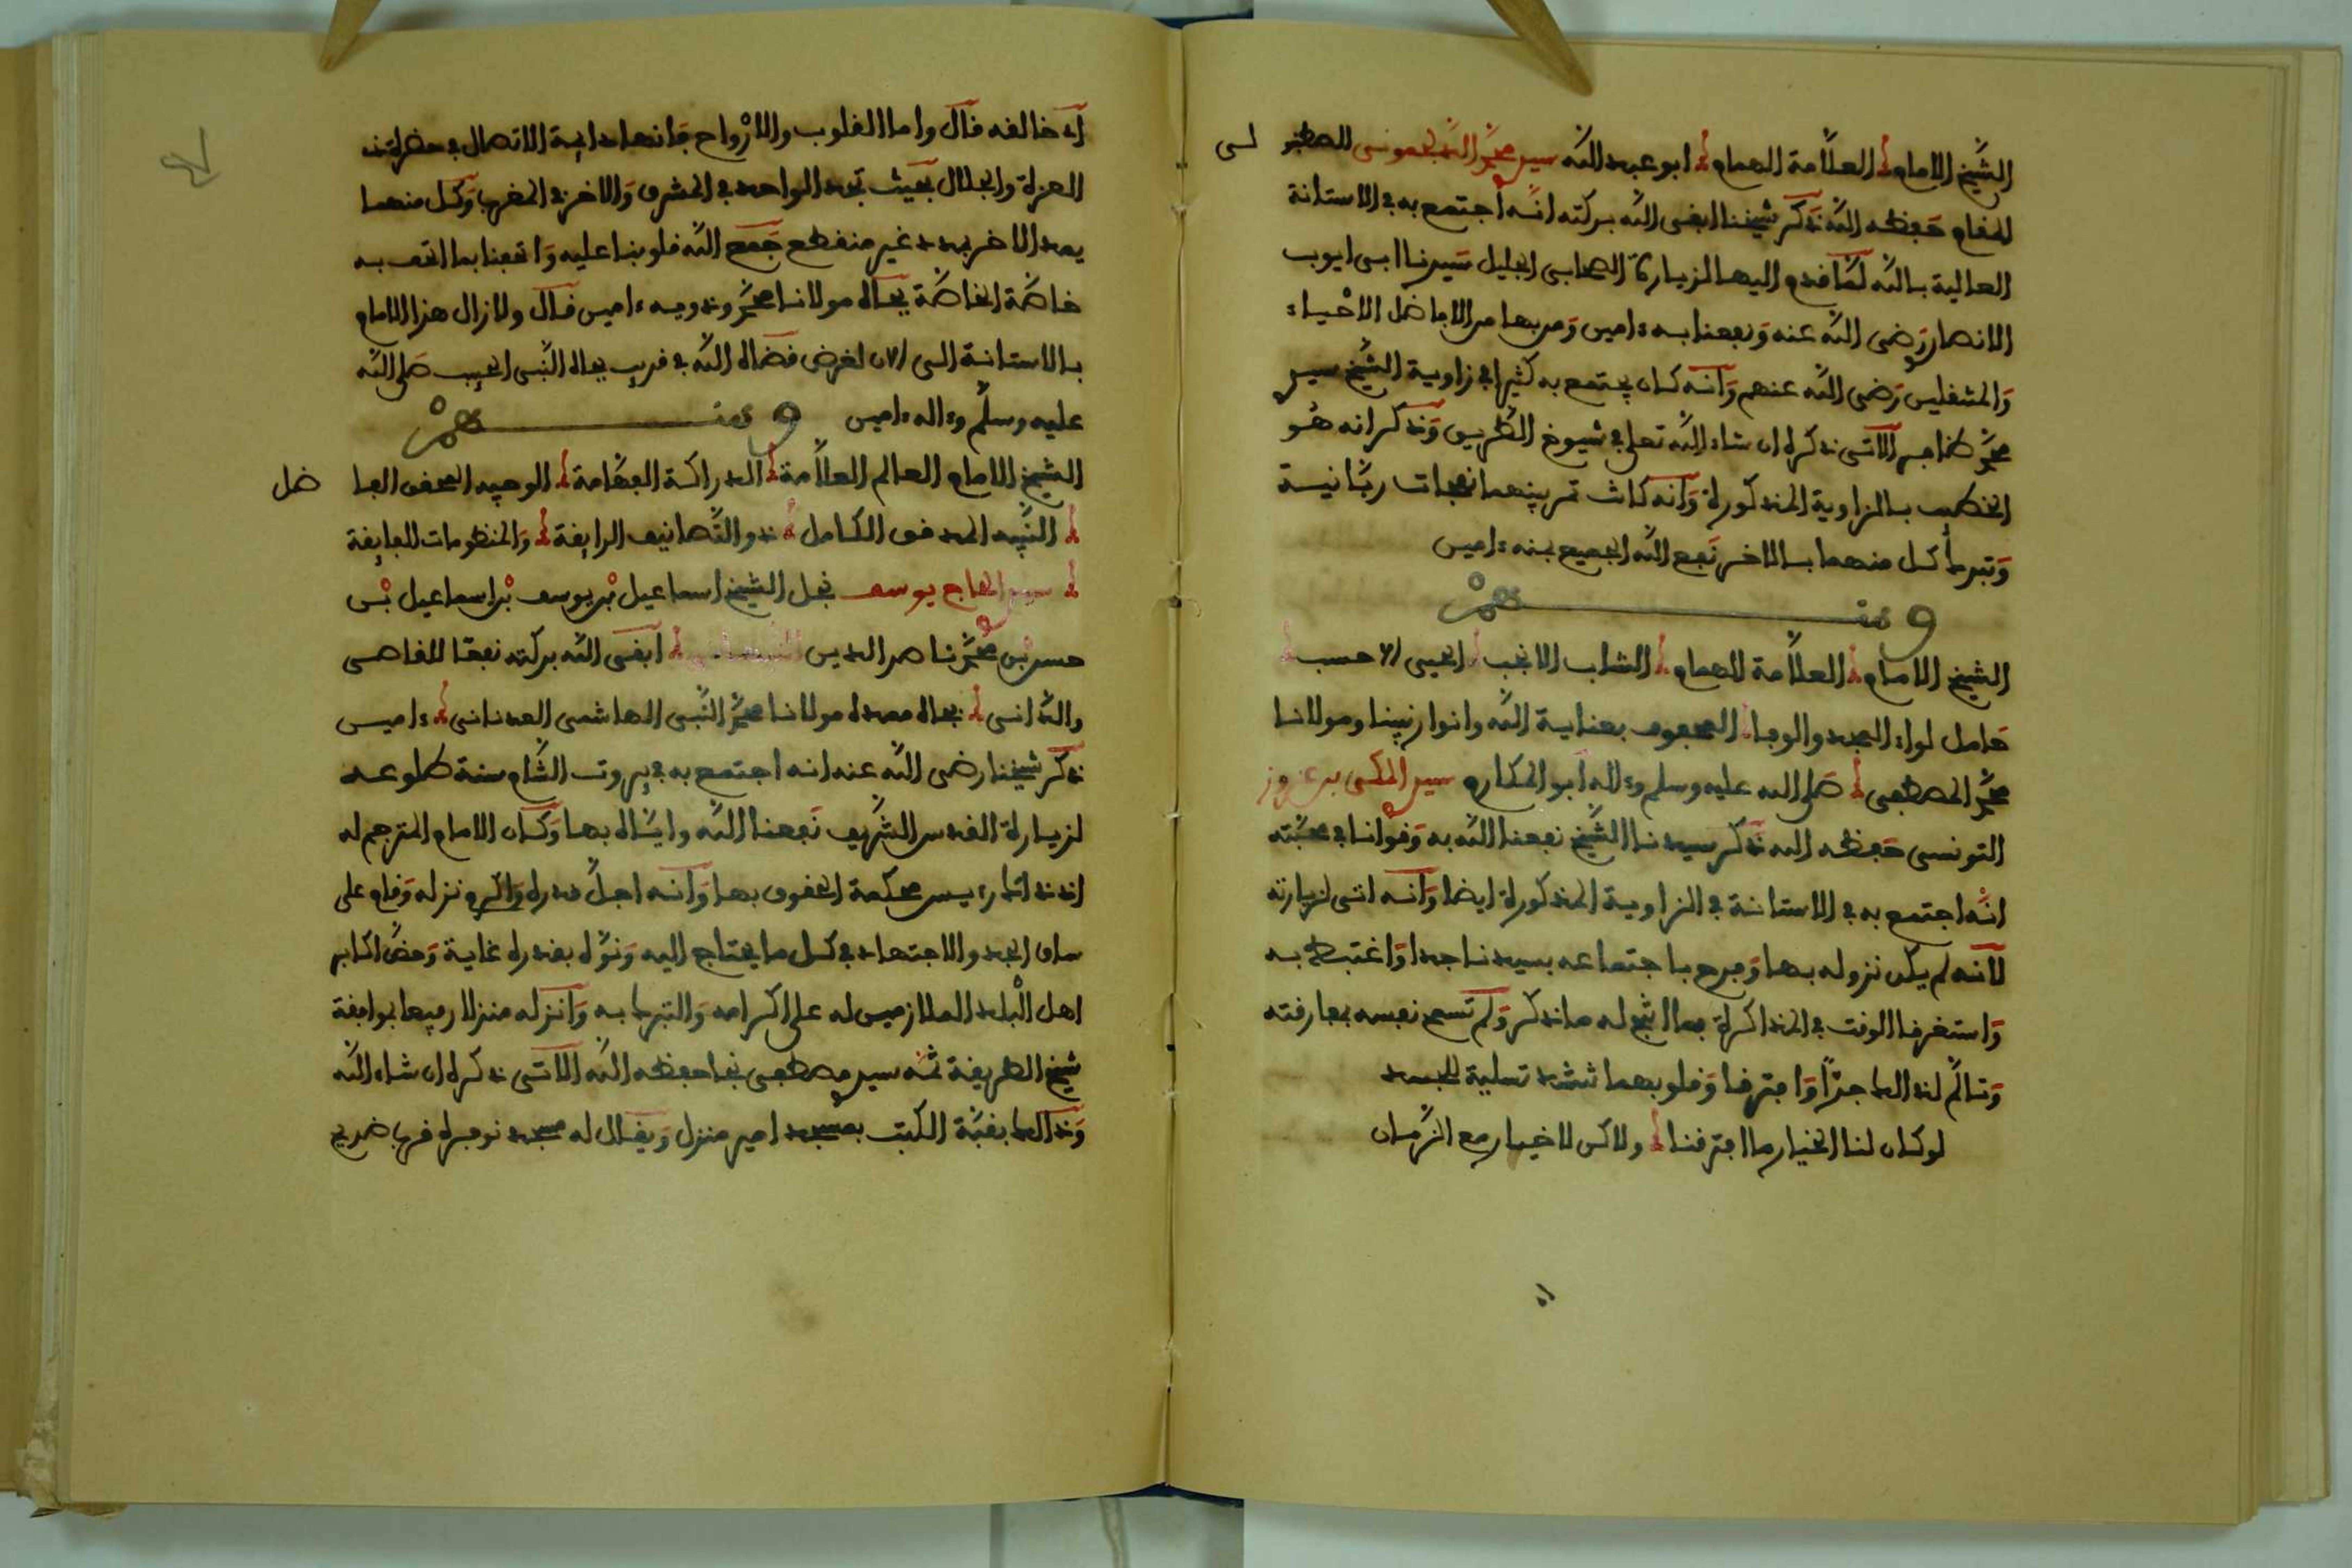 الشيخ الامام العلامة الهمام ابو عبد الله سيدي محمد
المقام حفظه الله ذكر شيخنا ابقى الله بركته انه اجتمع به في الاستانة
العالية بالله لما قدم اليها لزيارة الصحابي الجليل سيدنا ابي ايوب
الانصاري رضي الله عنه ونفعنا به ءامين ومن بها من الافاضل الاحياء
والمنتقلين رضي الله عنهم وانه كان يجتمع به كثيرا في زاوية الشيخ سيدي
محمد ظافر الاتي ذكره ان شاء الله تعلى في شيوخ الطريق وذكر انه هو
الخطيب بالزاوية المذكورة وانه كانت تمر بينهما نفحات ربانية
وتبرك كل منهما بالاخر نفع الله الجميع بمنه ءامين
ومنهم
الشيخ الامام العلامة الهمام الشاب الانجب الحيي الاحسب
حامل لواء المجد والوفا المحفوف بعناية الله وانوار نبينا ومولانا
محمد المصطفى صلى الله عليه وسلم وءاله ابو المكارم سيدي المكي بن عزوز
التونسي حفظه الله ذكر سيدنا الشيخ نفعنا الله به وقوانا في محبته
انه اجتمع به في الاستانة في الزاوية المذكورة ايضا وانه اتى لزيارته
لانه لم يكن نزوله بها وفرح باجتماعه بسيدنا جدا واغتبط به
واستغرقا الوقت في المذاكرة فما اثبج له ما ذكر ولم تسمح نفسه بمفارقته
وتالم لذالك جدا وافترقا وقلوبهما تنشد تسلية للجسد
لو كان لنا الخيار ما افترقنا ولاكن لا خيار مع الزمان
اذ خالقه قال واما القلوب والارواح فانها دايمة الاتصال في حضرة
العزة والجلال بحيث تجد الواحد في المشرق والاخر في المغرب وكل منهما
يمد الاخر بمدد غير منقطع جمع الله قلوبنا عليه واتحفنا بما اتحف به
خاصة الخاصة بجاه مولانا محمد وذويه ءامين قال ولازال هذا الامام
بالاستانة الى الان لغرض قضاه الله في قريب بجاه النبي الحبيب صلى الله
عليه وسلم وءاله ءامين ومنهم
الشيخ الامام العالم العلامة الدراكة الفهامة الوحيد المحقق الفاضل
النبيه المدقق الكامل ذو التصانيف الرايقة والمنظومات الفايقة
سيدي الحاج يوسف نجل الشيخ اسماعيل بن يوسف بن اسماعيل بن
حسن بن محمد ناصر الدين النبهاني ابقى الله بركته نفعا للقاصي
والداني بجاه ممده مولانا محمد النبي الهاشمي العدناني ءامين
ذكر شيخنا رضي الله عنه انه اجتمع به في بيروت الشام سنة طلوعه
لزيارة القدس الشريف نفعنا الله واياه بها وكان الامام المترجم له
اذ ذاك رءيس محكمة الحقوق بها وانه اجل قدره واكرم نزله وقام على
ساق الجد والاجتهاد في كل ما يحتاج اليه ونوه بقدره غاية وحض اكابر
اهل البلد الملازمين له على اكرامه والتبرك به وانزله منزلا رفيعا بموافقة
شيخ الطريقة ثمه سيدي مصطفى نجا حفظه الله الاتي ذكره ان شاء الله
وذالك بقبة الكتب بمسجد امير منزل ويقال له مسجد نوفره قرب ضريح